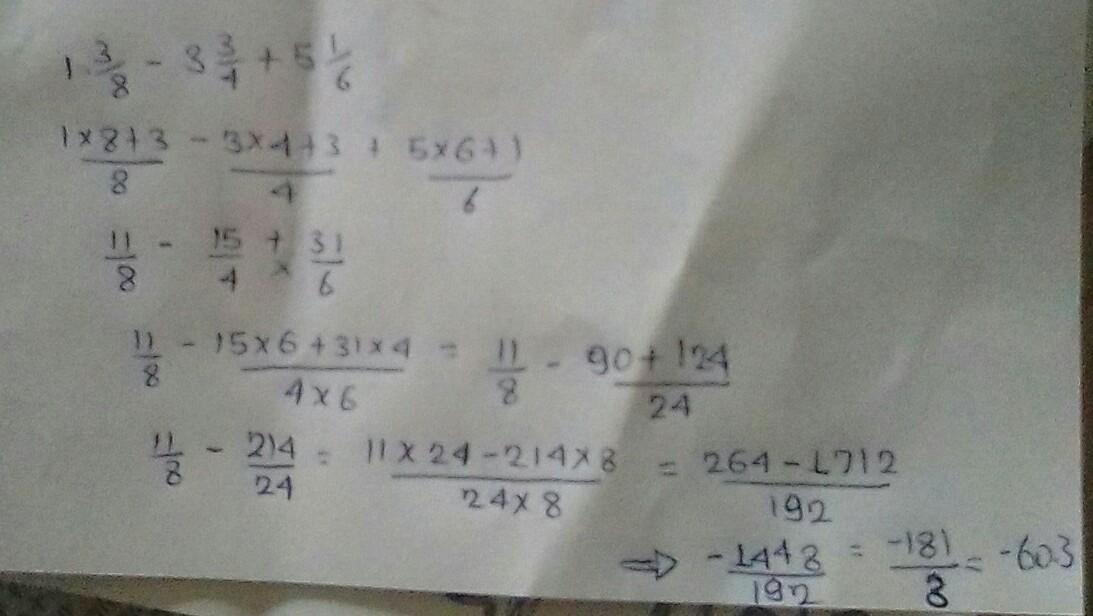 1 3/8 - 3 3/4 + 5 1/6
(1×8+3)/8 - (3×4+3)/4 + (5×6+1)/6
11/8 - 15/4 + × 31/6
11/8 - (15×6+31×4)/(4×6) = 11/8 - (90+124)/24
11/8 - 214/24 = (11×24-214×8)/(24×8) = (264-1712)/192
⇒ -1448/192 = -181/3 = -60.3